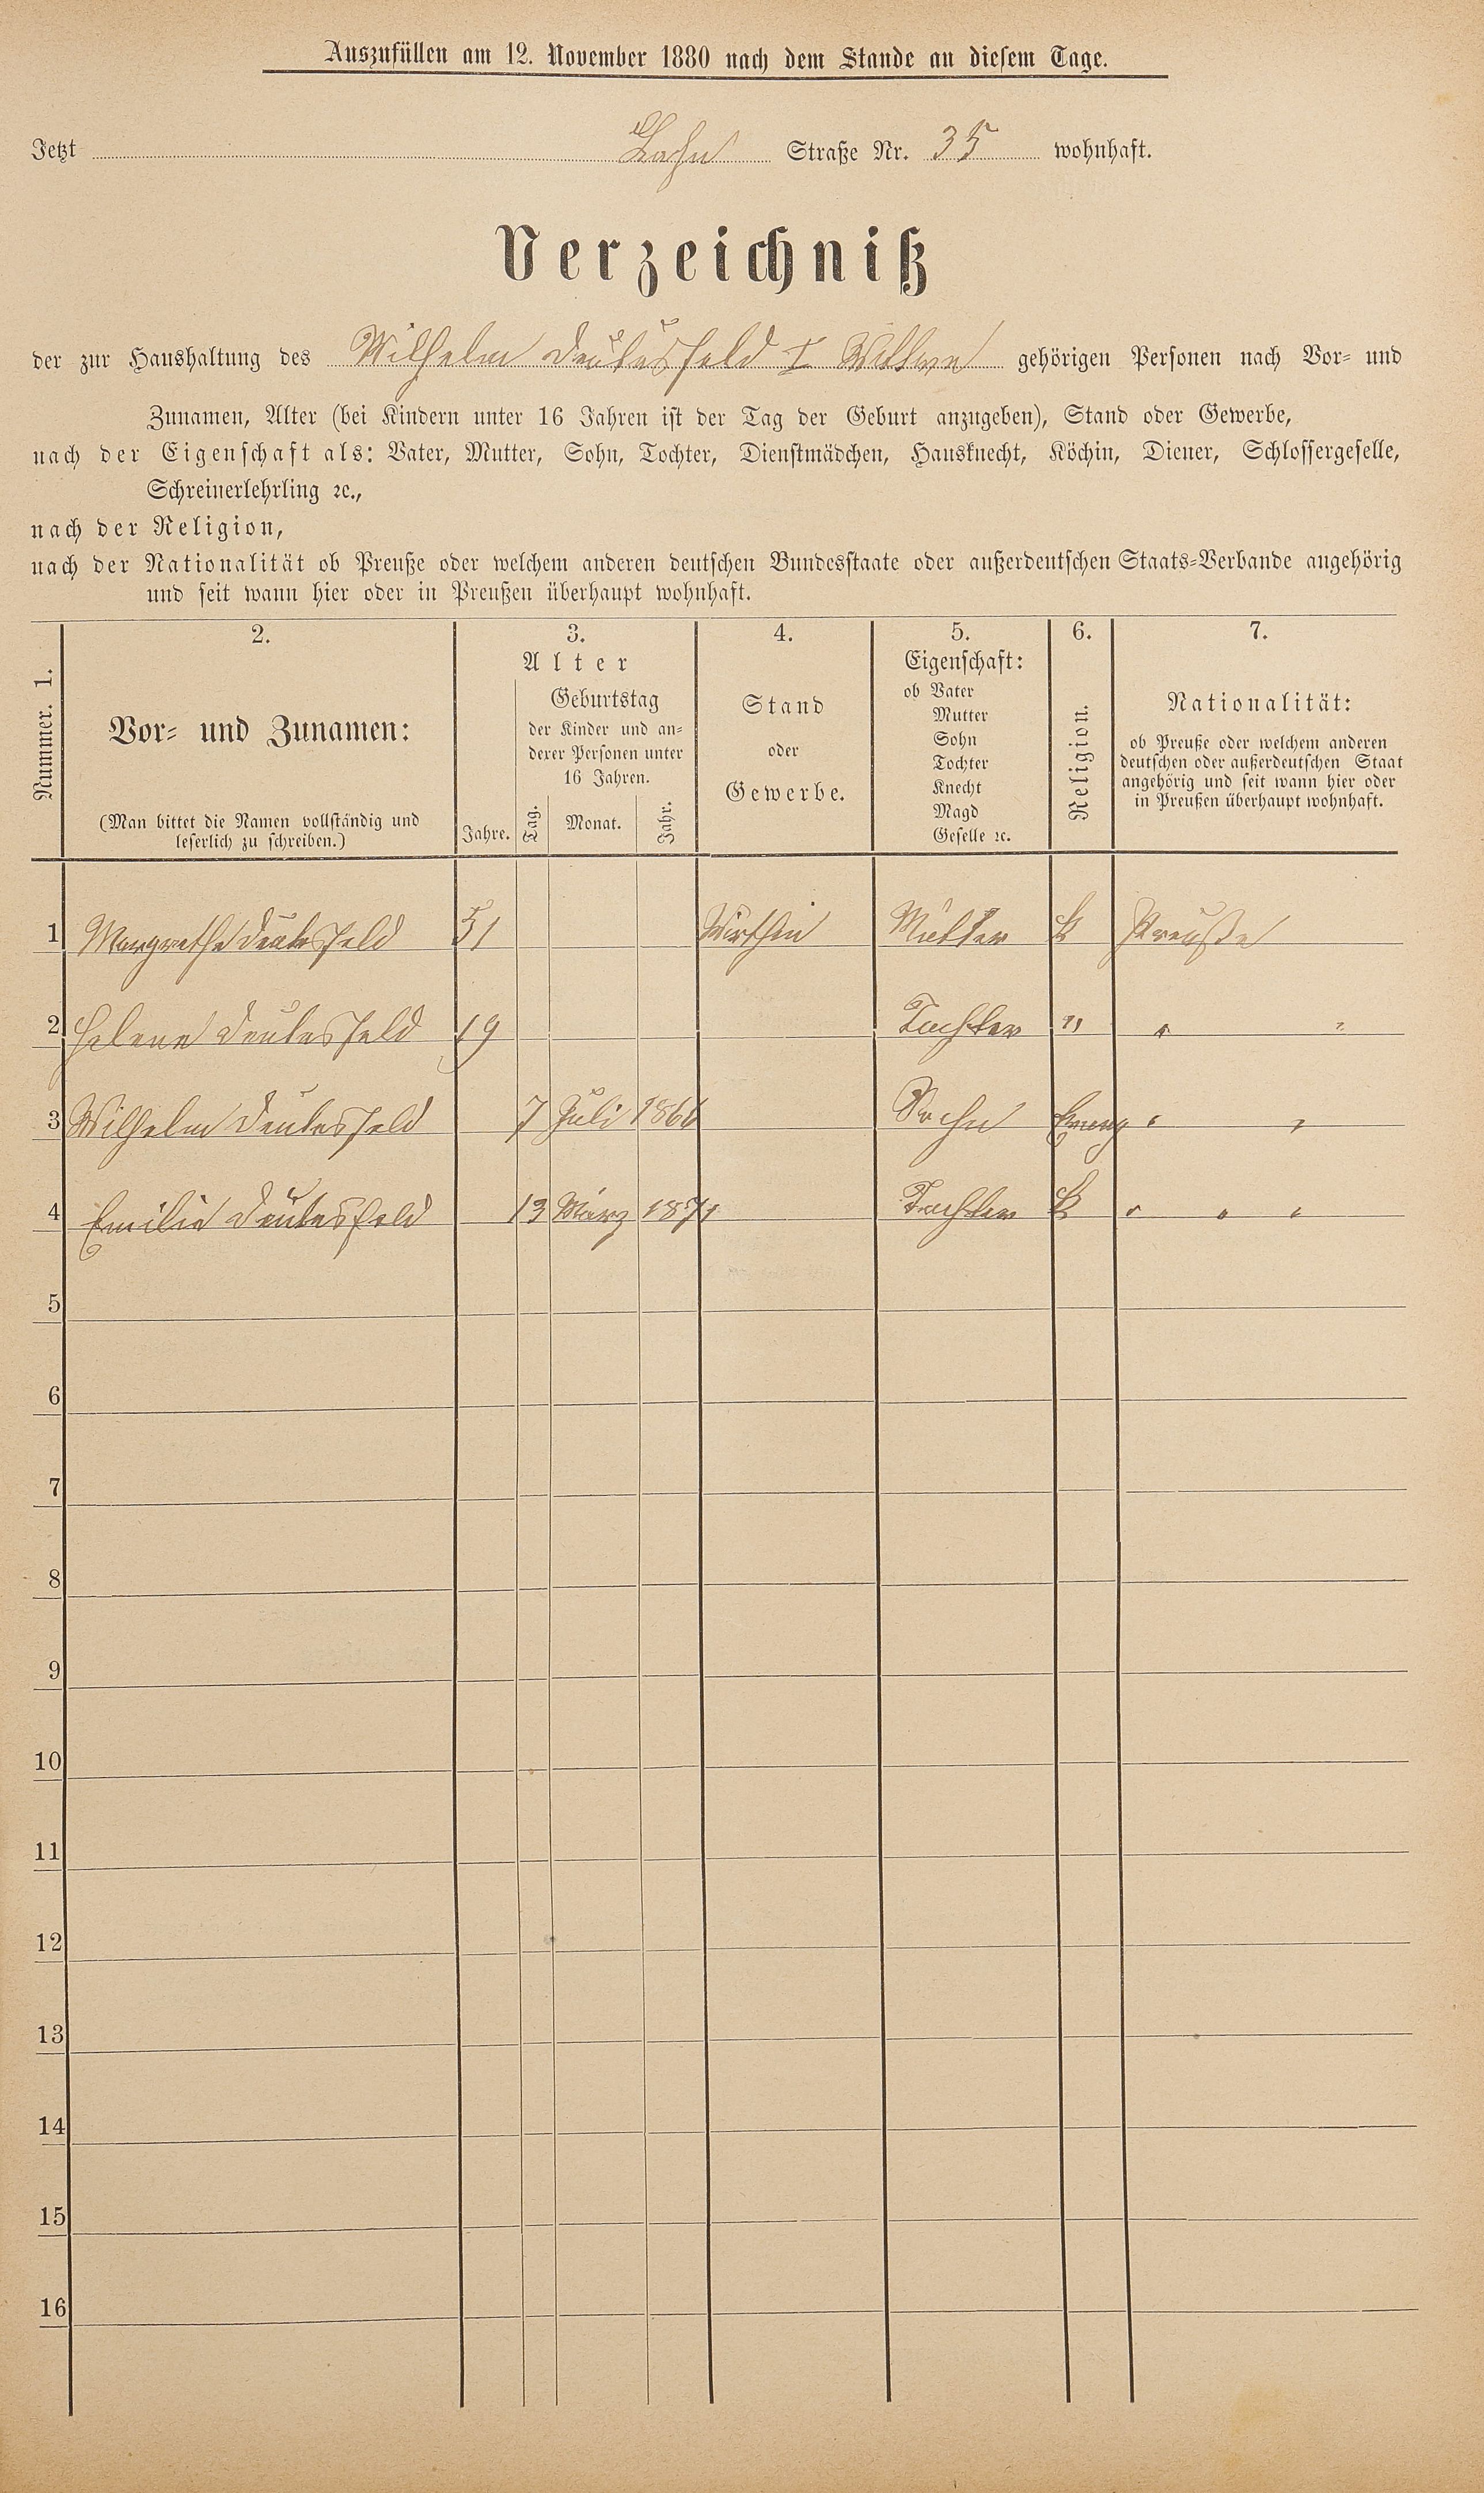 Auszufüllen am 12. November 1880 nach dem Stande an diesem Tage.
Jetzt Lahn Straße Nr. 35 wohnhaft.
Verzeichniß
der zur Haushaltung des Wilhelm Deutesfeld I Wittwe gehörigen Personen nach Vor- und
Zunamen, Alter (bei Kindern unter 16 Jahren ist der Tag der Geburt anzugeben), Stand oder Gewerbe,
nach der Eigenschaft als: Vater, Mutter, Sohn, Tochter, Dienstmädchen, Hausknecht, Köchin, Diener, Schlossergeselle,
Schreinerlehrling ꝛc.,
nach der Religion,
nach der Nationalität ob Preuße oder welchem anderen deutschen Bundesstaate oder außerdeutschen Staats-Verbande angehörig
und seit wann hier oder in Preußen überhaupt wohnhaft.
Nummer. 1.
2.
Vor- und Zunamen:
(Man bittet die Namen vollständig und
leserlich zu schreiben.)
3.
Alter
Geburtstag
der Kinder und an-
derer Personen unter
16 Jahren.
Jahre. Tag. Monat. Jahr.
4.
Stand
oder
Gewerbe.
5.
Eigenschaft:
ob Vater
Mutter
Sohn
Tochter
Knecht
Magd
Geselle ꝛc.
6.
Religion.
7.
Nationalität:
ob Preuße oder welchem anderen
deutschen oder außerdeutschen Staat
angehörig und seit wann hier oder
in Preußen überhaupt wohnhaft.
1 Margrethe Deutesfeld 51 Wirthin Mutter K Preuße
2 Helene Deutesfeld 19 Tochter " " "
3 Wilhelm Deutesfeld 7 Juli 1866 Sohn Evang " "
4 Emilie Deutesfeld 13 März 1871 Tochter K " " "
5
6
7
8
9
10
11
12
13
14
15
16